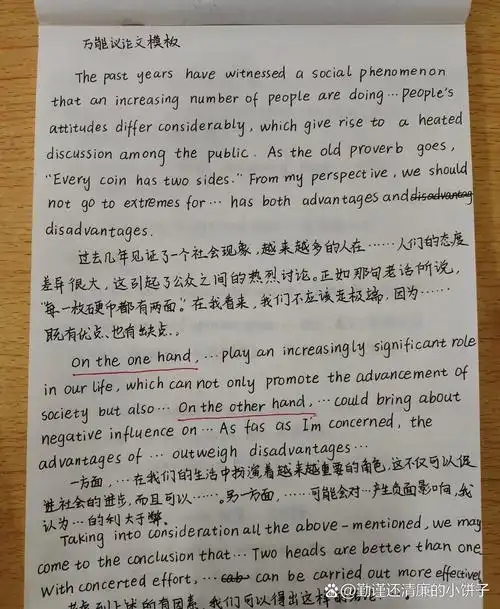 万能议论文模板
The past years have witnessed a social phenomenon
that an increasing number of people are doing… People's
attitudes differ considerably, which give rise to a heated
discussion among the public. As the old proverb goes,
"Every coin has two sides." From my perspective, we should
not go to extremes for… has both advantages and disadvantag
disadvantages.
过去几年见证了一个社会现象,越来越多的人在……人们的态度
差异很大,这引起了公众之间的热烈讨论。正如那句老话所说,
"每一枚硬币都有两面。"在我看来,我们不应该走极端,因为……
既有优点、也有缺点.。
On the one hand, … play an increasingly significant role
in our life, which can not only promote the advancement of
society but also … On the other hand, … could bring about
negative influence on … As fas as I'm concerned, the
advantages of … outweigh disadvantages …
一方面,…在我们的生活中扮演着越来越重要的角色,这不仅可以促
进社会的进步,而且可以……。另一方面,……可能会对…产生负面影响,我
认为…的利大于弊.
Taking into consideration all the above-mentioned, we may
come to the conclusion that… Two heads are better than one
With concerted effort, … cab can be carried out more effective
考虑到上述的所有因素,我们可以得出这样
@勤谨还清廉的小饼子